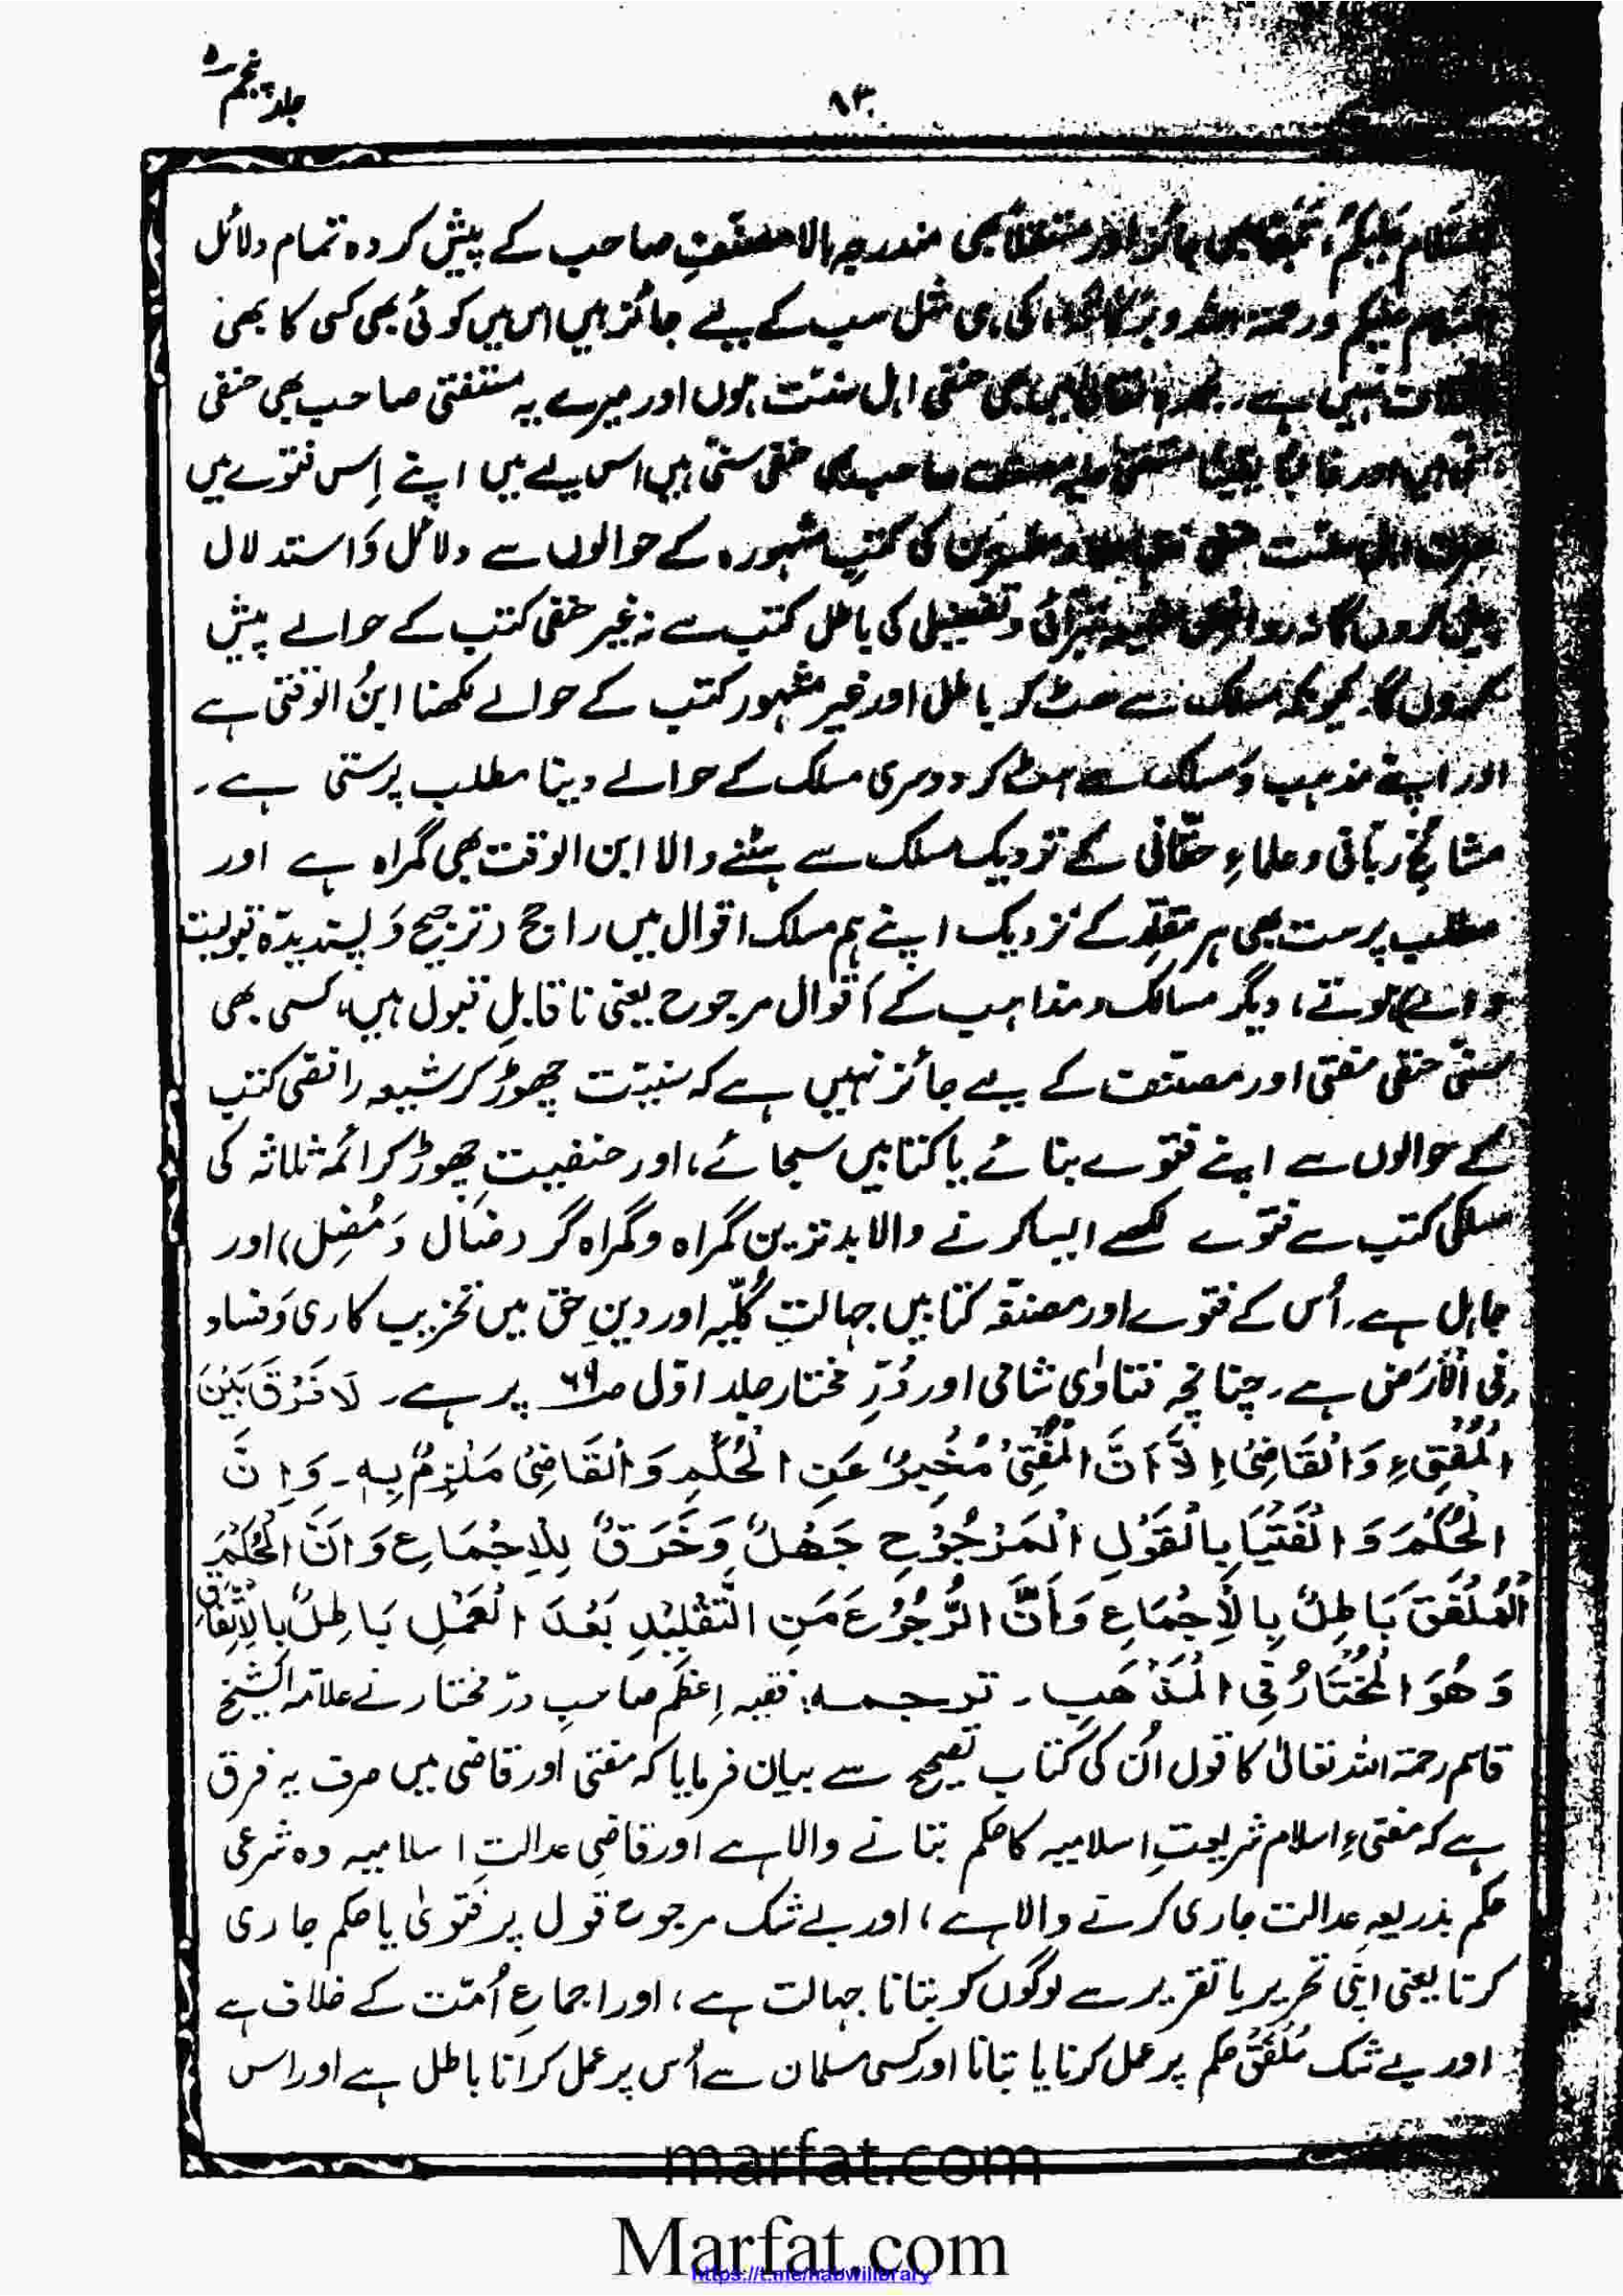 جلد پنجم ۵
۸۳
مندرجہ بالا مصنّفِ صاحب کے پیش کردہ تمام دلائل
کی ہی مثل سب کے لیے جائز ہیں اس میں کوئی بھی کسی کا بھی
نہیں ہے۔ بھی حنفی اہل سنّت ہوں اور میرے یہ مستفتی صاحب بھی حنفی
صاحب بھی حنفی سنّی ہیں اس لیے میں اپنے اِس فتوے میں
کی کتبِ مشہورہ کے حوالوں سے دلائل وَ استدلال
پیش کروں گا نہ تبرّائی و تفضیلی کی باطل کتب سے نہ غیر حنفی کتب کے حوالے پیش
کروں گا۔ کیونکہ مسلک سے ہٹ کر باطل اور غیر مشہور کتب کے حوالے لکھنا ابنُ الوقتی ہے
اور اپنے مذہب وَ مسلک سے ہٹ کر دوسری مسلک کے حوالے دینا مطلب پرستی ہے۔
مشائخِ ربّانی و علماءِ حقّانی کے نزدیک مسلک سے ہٹنے والا ابن الوقت بھی گمراہ ہے اور
مطلب پرست بھی ہر مقلّد کے نزدیک اپنے ہم مسلک اقوال ہیں راجح (ترجیح وَ پسندیدہ قبولیت
والے) ہوتے، دیگر مسالک و مذاہب کے اَقوال مرجوح یعنی ناقابلِ قبول ہیں، کسی بھی
سنّی حنفی مفتی اور مصنّف کے لیے جائز نہیں ہے کہ سنیّت چھوڑ کر شیعہ رافضی کتب
کے حوالوں سے اپنے فتوے بنائے یا کتابیں سجائے، اور حنفیت چھوڑ کر ائمہ ثلاثہ کی
مسلکی کتب سے فتوے لکھے ایسا کرنے والا بدترین گمراہ و گمراہ گر (ضَال وَ مُضِل) اور
جاہل ہے۔ اُس کے فتوے اور مصنفہ کتابیں جہالتِ کُلّیہ اور دینِ حق میں تخریب کاری وَ فساد
فِی الْاَرَض ہے۔ چنانچہ فتاوٰی شامی اور دُرِّ مختار جلد اوّل صـ۶۹ پر ہے۔ لَا فَرْقَ بَیْنَ
الْمُفْتِیِ وَ الْقَاضِیْ اِلَّا اَنَّ الْمُفْتِیْ مُخْبِرٌ عَنِ الْحُکْمِ وَ الْقَاضِیْ مَلْزِمٌ بِہٖ۔ وَ اِنَّ
الْحُکْمَ وَ الْفَتْیَا بِالْقَوْلِ الْمَرْجُوْحِ جَھْلٌ وَ خَرَقٌ بِلْاِجْمَاعِ وَ اَنَّ الْحُکْمَ
الْمُلْفَقَ بَاطِلٌ بِالْاِجْمَاعِ وَ اَنَّ الرُّجُوْعَ عَنِ التَّقْلِیْدِ بَعْدَ الْعَمْلِ بَاطِلٌ بِالْاِتِّفَاقِ
وَ ھُوَ الْمُخْتَارُ فِی الْمَذْھَبِ۔ ترجمہ: فقیہِ اعظم صاحبِ درّ مختار نے علامہ الشیخ
قاسم رحمۃ اللہ تعالیٰ کا قول اُن کی کتاب تصیح سے بیان فرمایا کہ مفتی اور قاضی میں صرف یہ فرق
ہے کہ مفتیءِ اسلام شریعتِ اسلامیہ کا حکم بتانے والا ہے اور قاضیِ عدالتِ اسلامیہ وہ شرعی
حکم بذریعہ عدالت جاری کرنے والا ہے، اور بے شک مرجوح قول پر فتویٰ یا حکم جاری
کرنا یعنی اپنی تحریر یا تقریر سے لوگوں کو بتانا جہالت ہے، اور اجماعِ اُمّت کے خلاف ہے
اور بے شک مُلْفَقْ حکم پر عمل کرنا یا بتانا اور کسی مسلمان سے اُس پر عمل کرانا باطل ہے اور اس
marfat.com
Marfat.com
https://t.me/nabwilibrary